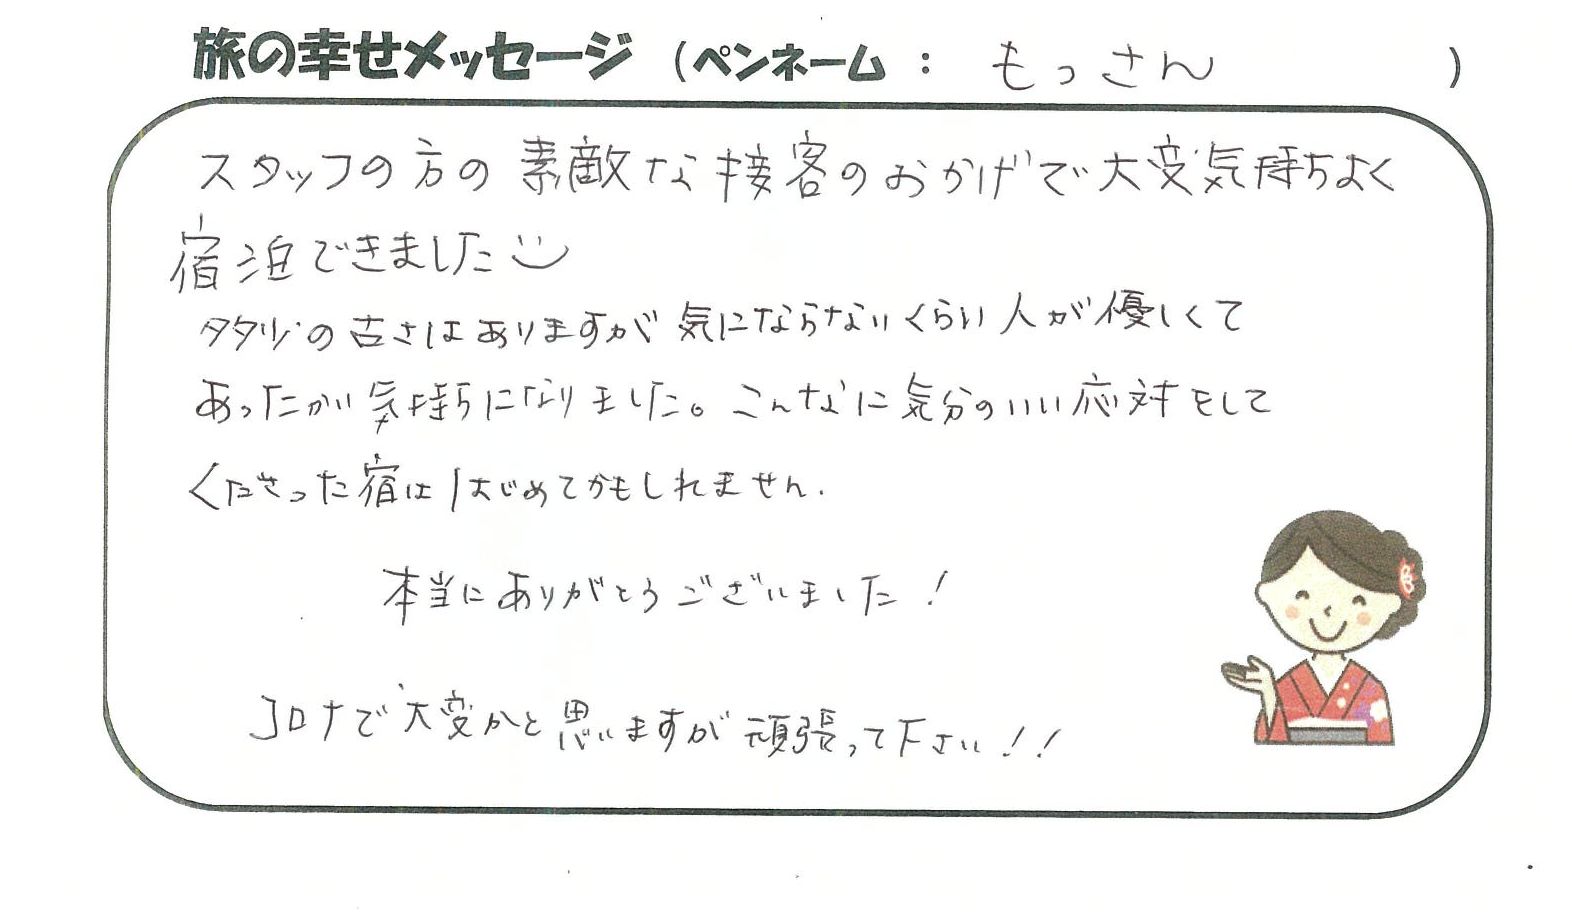 旅の幸せメッセージ (ペンネーム : もっさん )
スタッフの方の素敵な接客のおかげで大変気持ちよく
宿泊できました
多少の古さはありますが気にならないくらい人が優しくて
あったかい気持ちになりました。こんなに気分のいい応対をして
くださった宿ははじめてかもしれません.
本当にありがとうございました!
コロナで大変かと思いますが頑張って下さい!!